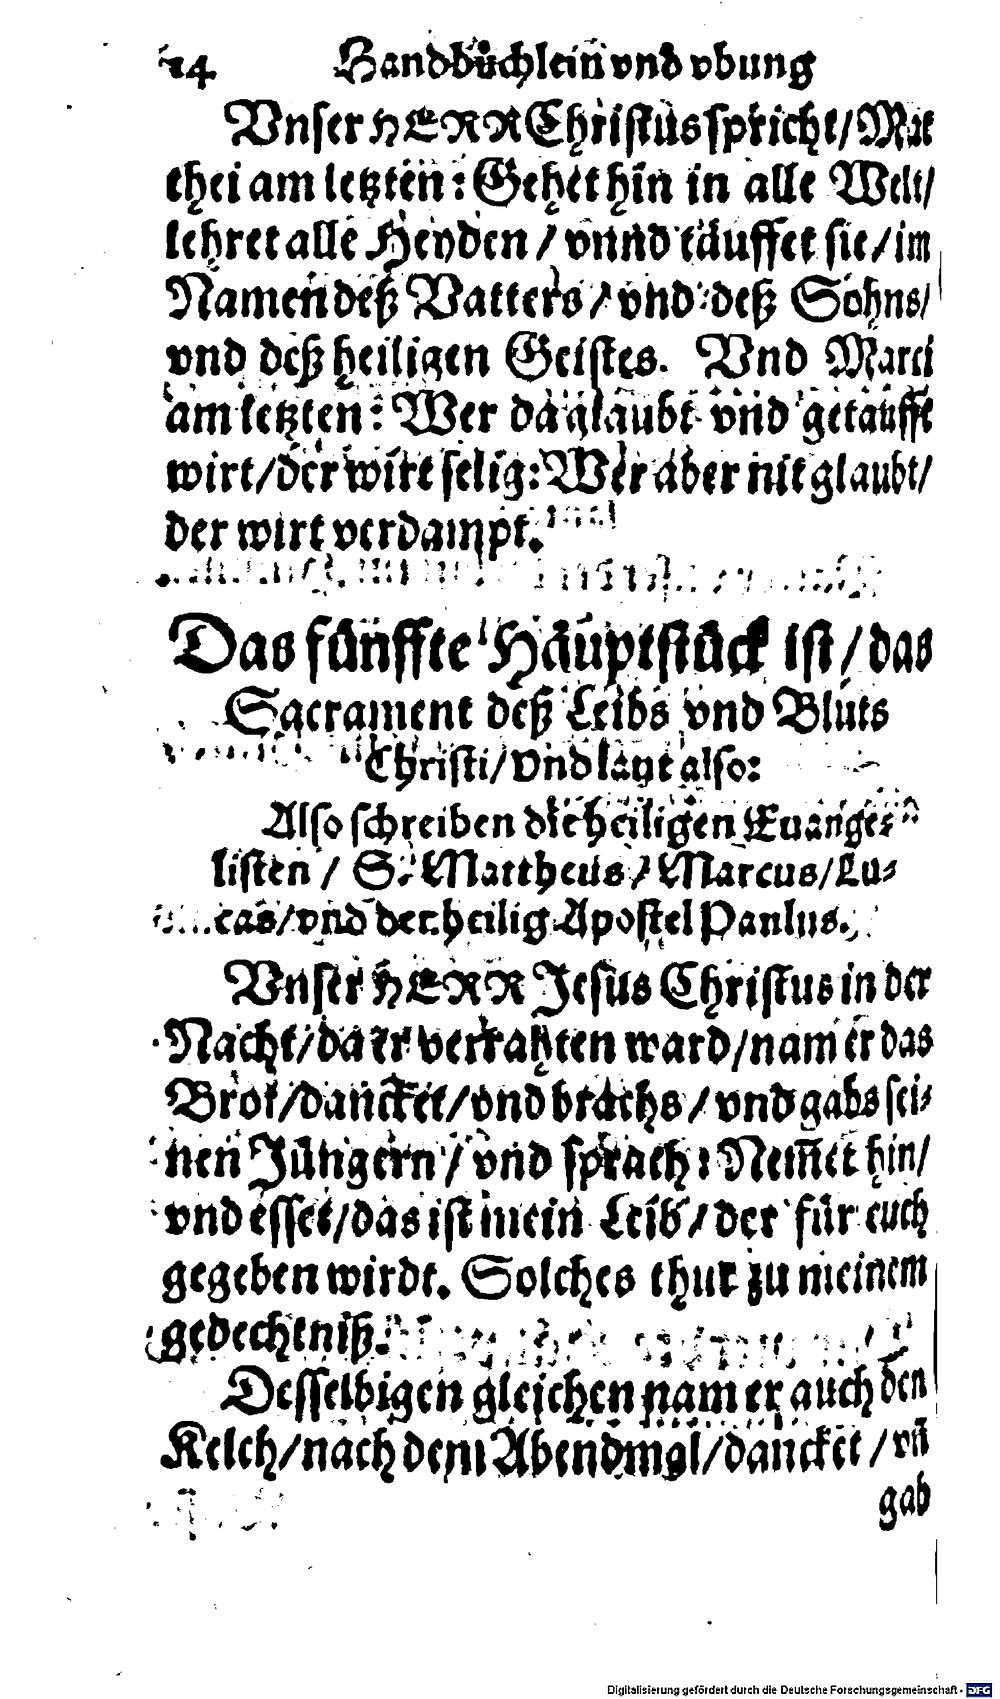 14 Handbüchlein vnd vbung
Vnser HERR Christus spricht/ Mat
thei am letzten: Gehet hin in alle Welt/
lehret alle Heyden / vnnd täuffet sie / im
Namen deß Vatters / vnd deß Sohns/
vnd deß heiligen Geistes. Vnd Marci
am letzten: Wer da glaubt vnd getaufft
wirt/der wirt selig: Wer aber nit glaubt/
der wirt verdampt.
Das fünffte Häuptstück ist / das
Sacrament deß Leibs vnd Bluts
Christi/ vnd laut also:
Also schreiben die heiligen Euange⸗
listen / S. Mattheus / Marcus/ Lu⸗
cas/ vnd der heilig Apostel Paulus.
Vnser HERR Jesus Christus in der
Nacht/ da er verrahten ward/ nam er das
Brot/ dancket/ vnd brachs / vnd gabs sei⸗
nen Jüngern / vnd sprach: Nem̃et hin/
vnd esset/ das ist mein Leib / der für euch
gegeben wirdt. Solches thut zu meinem
gedechtniß.
Desselbigen gleichen nam er auch den
Kelch/ nach dem Abendmal/ dancket / vñ
gab
Digitalisierung gefördert durch die Deutsche Forschungsgemeinschaft - DFG